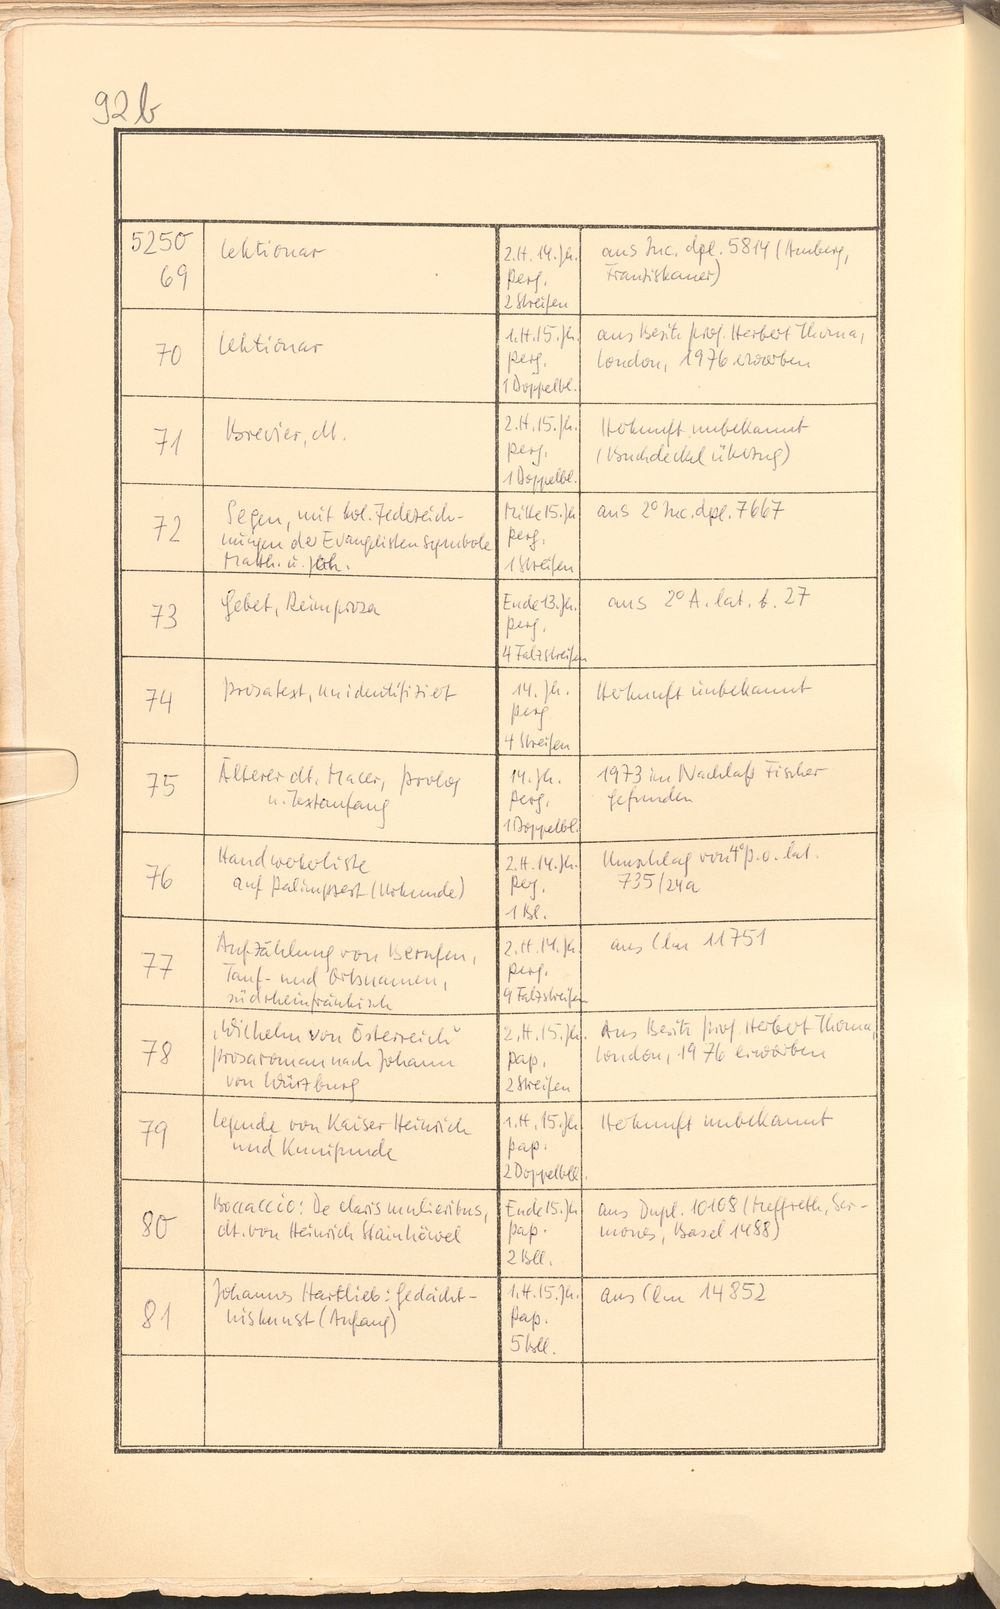 92b
5250
69
Lektionar
2.H.14.Jh.
Perg.
2 Streifen
aus Inc. dpl. 5814 (Amberg,
Franziskaner)
70
Lektionar
1.H.15.Jh.
Perg.
1 Doppelbl.
aus Besitz Prof. Herbert Thoma,
London, 1976 erworben
71
Brevier, dt.
2.H.15.Jh.
Perg.
1 Doppelbl.
Herkunft unbekannt
(Buchdeckelüberzug)
72
Segen, mit kol. Federzeich-
nungen der Evangelistensymbole
Matth. u. Joh.
Mitte 15.Jh
Perg.
1 Streifen
aus 2° Inc. dpl. 7667
73
Gebet, Reimprosa
Ende 13.Jh.
Perg.
4 Falzstreifen
aus 2° A. lat. b. 27
74
Prosatext, unidentifiziert
14. Jh.
Perg
4 Streifen
Herkunft unbekannt
75
Älterer dt. Macer, Prolog
u. Textanfang
14. Jh.
Perg.
1 Doppelbl.
1973 im Nachlaß Fischer
gefunden
76
Handwerkerliste
auf Palimpsest (Urkunde)
2.H.14.Jh.
Perg.
1 Bl.
Umschlag von 4° P.o. lat.
735/24a
77
Aufzählung von Berufen,
Tauf- und Ortsnamen,
südrheinfränkisch
2.H.14.Jh.
Perg.
9 Falzstreifen
aus Clm 11751
78
"Wilhelm von Österreich"
Prosaroman nach Johann
von Würzburg
2.H.15.Jh.
Pap.
2 Streifen
Aus Besitz Prof. Herbert Thoma,
London, 1976 erworben
79
Legende von Kaiser Heinrich
und Kunigunde
1.H.15.Jh
Pap.
2 Doppelbll.
Herkunft unbekannt
80
Boccaccio: De claris mulieribus,
dt. von Heinrich Stainhöwel
Ende 15.Jh
Pap.
2 Bll.
aus Dupl. 10108 (Meffreth, Ser-
mones, Basel 1488)
81
Johannes Hartlieb: Gedächt-
niskunst (Anfang)
1.H.15.Jh.
Pap.
5 Bll.
aus Clm 14852